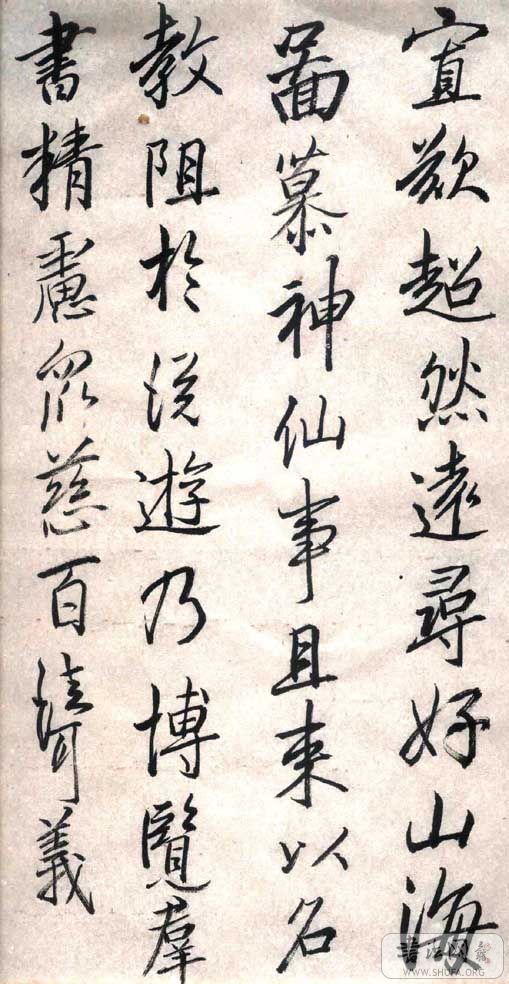 宜欲超然遠尋好山海
啚慕神仙事且来以名
教阻於遊乃博覽羣
書精慮眾慈百義
书法网
WWW.SHUFA.ORG